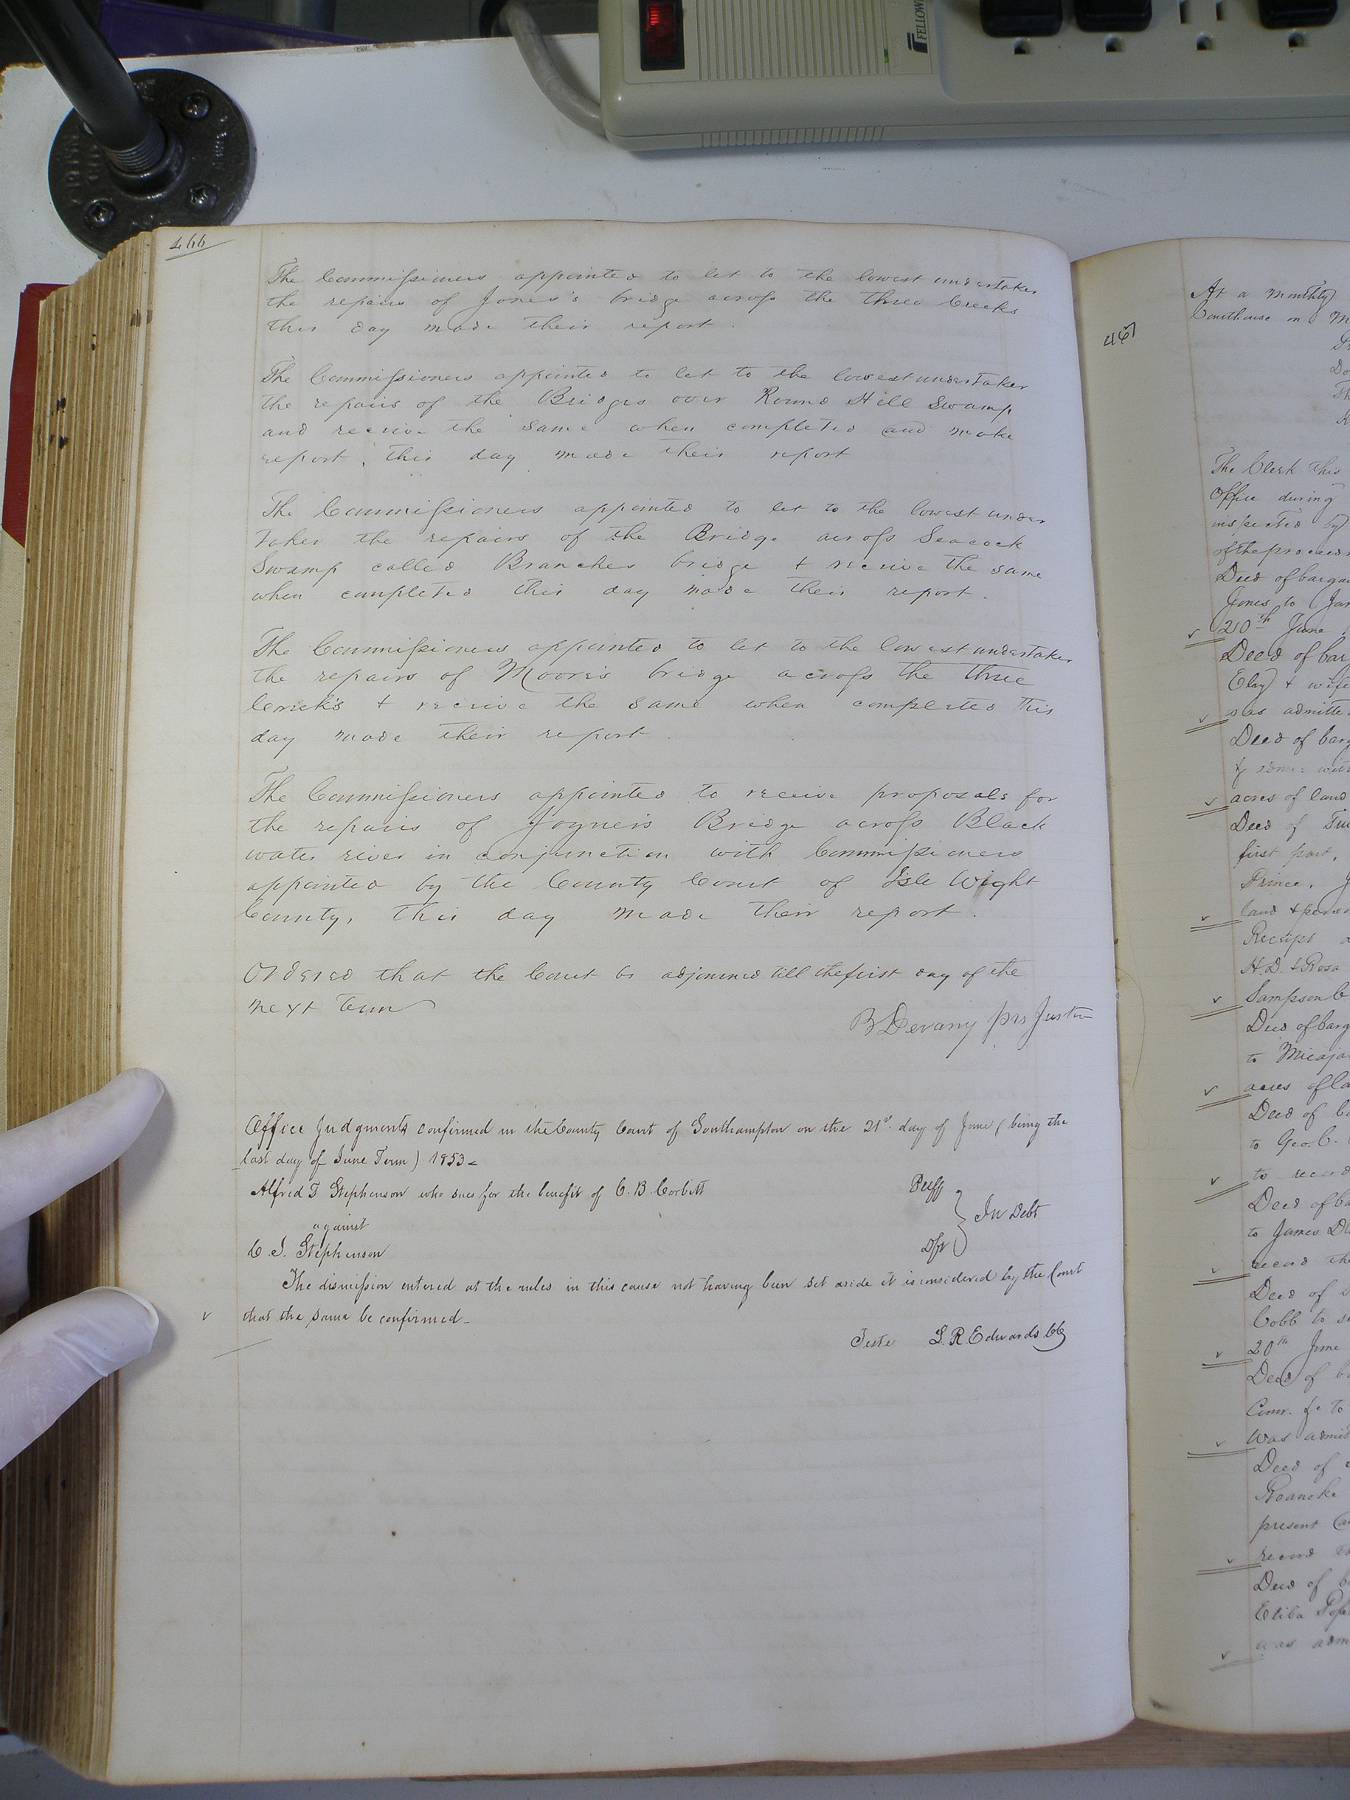 FELLOW
466
The Commissioners appointed to let to the lowest undertaker
the repairs of Jones's bridge across the three Creeks
this day made their report.
The Commissioners appointed to let to the lowest undertaker
the repairs of the Bridges over Round Hill Swamp
and receive the same when completed and make
report, this day made their report
The Commissioners appointed to let to the lowest under
taker the repairs of the Bridge across Seacock
Swamp called Branches bridge + receive the same
when completed this day made their report.
The Commissioners appointed to let to the lowest undertaker
the repairs of Moore's bridge across the three
Creeks + receive the same when completed this
day made their report.
The Commissioners appointed to receive proposals for
the repairs of Joyner's Bridge across Black
water river in conjunction with Commissioners
appointed by the County Court of Isle Wight
County, this day made their report.
Ordered that the Court be adjourned till the first day of the
next Term
B Devany prs Justice
Office Judgments confirmed in the County Court of Southampton on the 21st day of June (being the
last day of June Term) 1853
Alfred T Stephenson who sues for the benefit of C. B Corbett Plff
against } In Debt
C. J. Stephenson Dft
The dismission entered at the rules in this cause not having been set aside it is considered by the Court
that the same be confirmed
Teste L. R Edwards Clk
467
At a Monthly
Courthouse on M
The Clerk this
Office during
inspected by
of the proceed
Deed of barga
Jones to Ja
20th June
Deed of bar
Elay + wife
was admitte
Deed of barg
acres of land
Deed of Tru
first part,
Prince, J
land + perso
Receipt
H. D. + Rosa
Sampson C
Deed of barg
to Micaja
acres of la
Deed of b
to Geo. C.
to record
Deed of ba
to James D
record the
Deed of
Cobb to s
20th June
Deed of b
Comr. &c to
was admit
Deed of
Roanoke
present
record
Deed of b
Eliba Pope
was adm